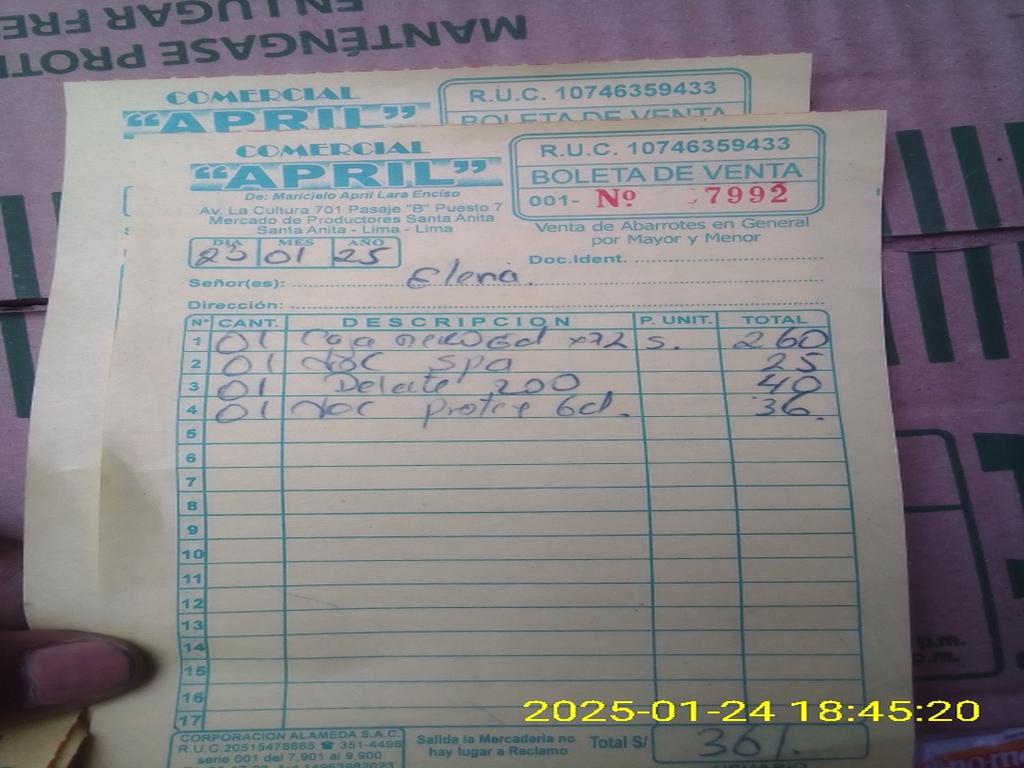 MANTÉNGASE PROT
EN LUGAR FRE
COMERCIAL
"APRIL"
R.U.C. 10746359433
BOLETA DE VENTA
COMERCIAL
"APRIL"
De: Maricielo April Lara Enciso
Av. La Cultura 701 Pasaje "B" Puesto 7
Mercado de Productores Santa Anita
Santa Anita - Lima - Lima
R.U.C. 10746359433
BOLETA DE VENTA
001- Nº 7992
Venta de Abarrotes en General
por Mayor y Menor
DIA MES AÑO
23 01 25
Doc.Ident.
Señor(es): Elena.
Dirección:
Nº CANT. DESCRIPCION P. UNIT. TOTAL
1 01 Caja 6d x72 S. 260
2 01 spa 25
3 01 200 40
4 01 Protex 6d. 36.
5
6
7
8
9
10
11
12
13
14
15
16
17
CORPORACION ALAMEDA S.A.C.
R.U.C.20515478865 ☎ 351-4496
serie 001 del 7,901 al 9,900
Salida la Mercadería no
hay lugar a Reclamo
Total S/ 361.
USUARIO
p.m.
p.m.
2025-01-24 18:45:20